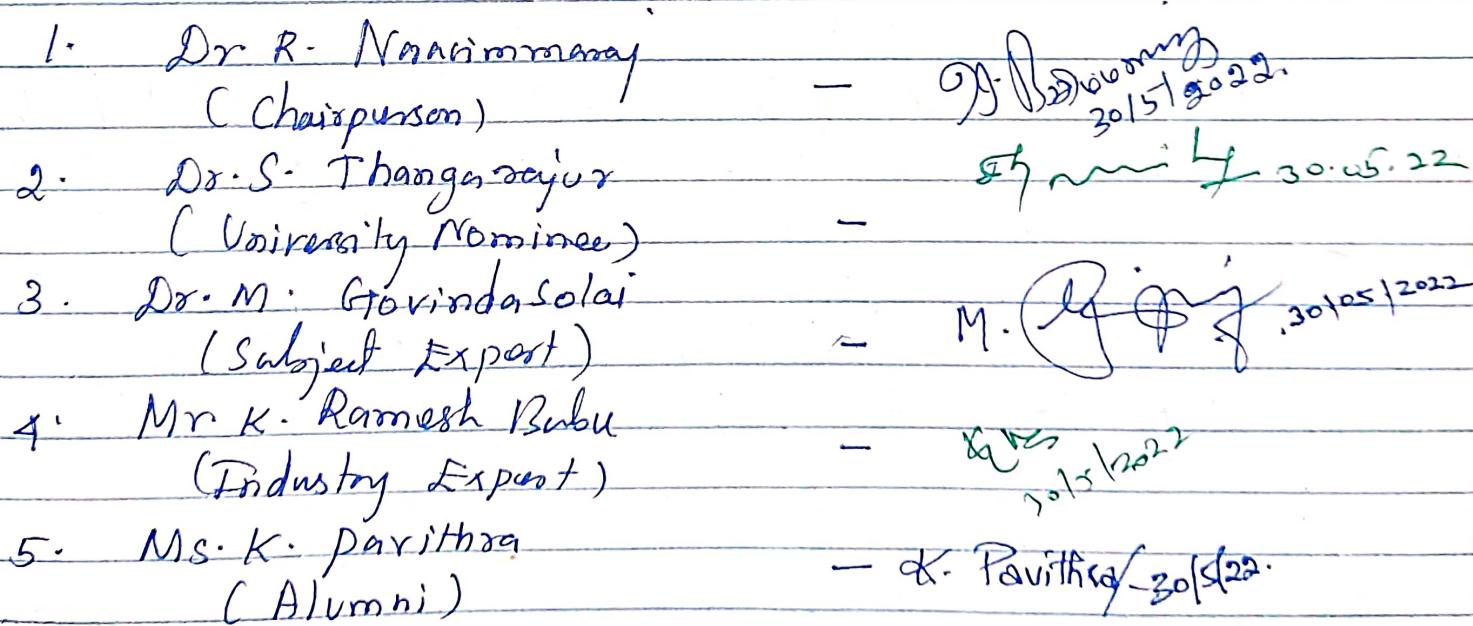 1. Dr R. Naarimmanay
(Chairperson) -
30/5/2022.
2. Dr. S. Thangarajur 30.05.22
(University Nominee) -
3. Dr. M. Govindasolai
(Subject Expert) - M. 30/05/2022
4. Mr K. Ramesh Babu
(Industry Expert) - 30/5/2022
5. Ms. K. Pavithra
(Alumni) - K. Pavithra 30/5/22.